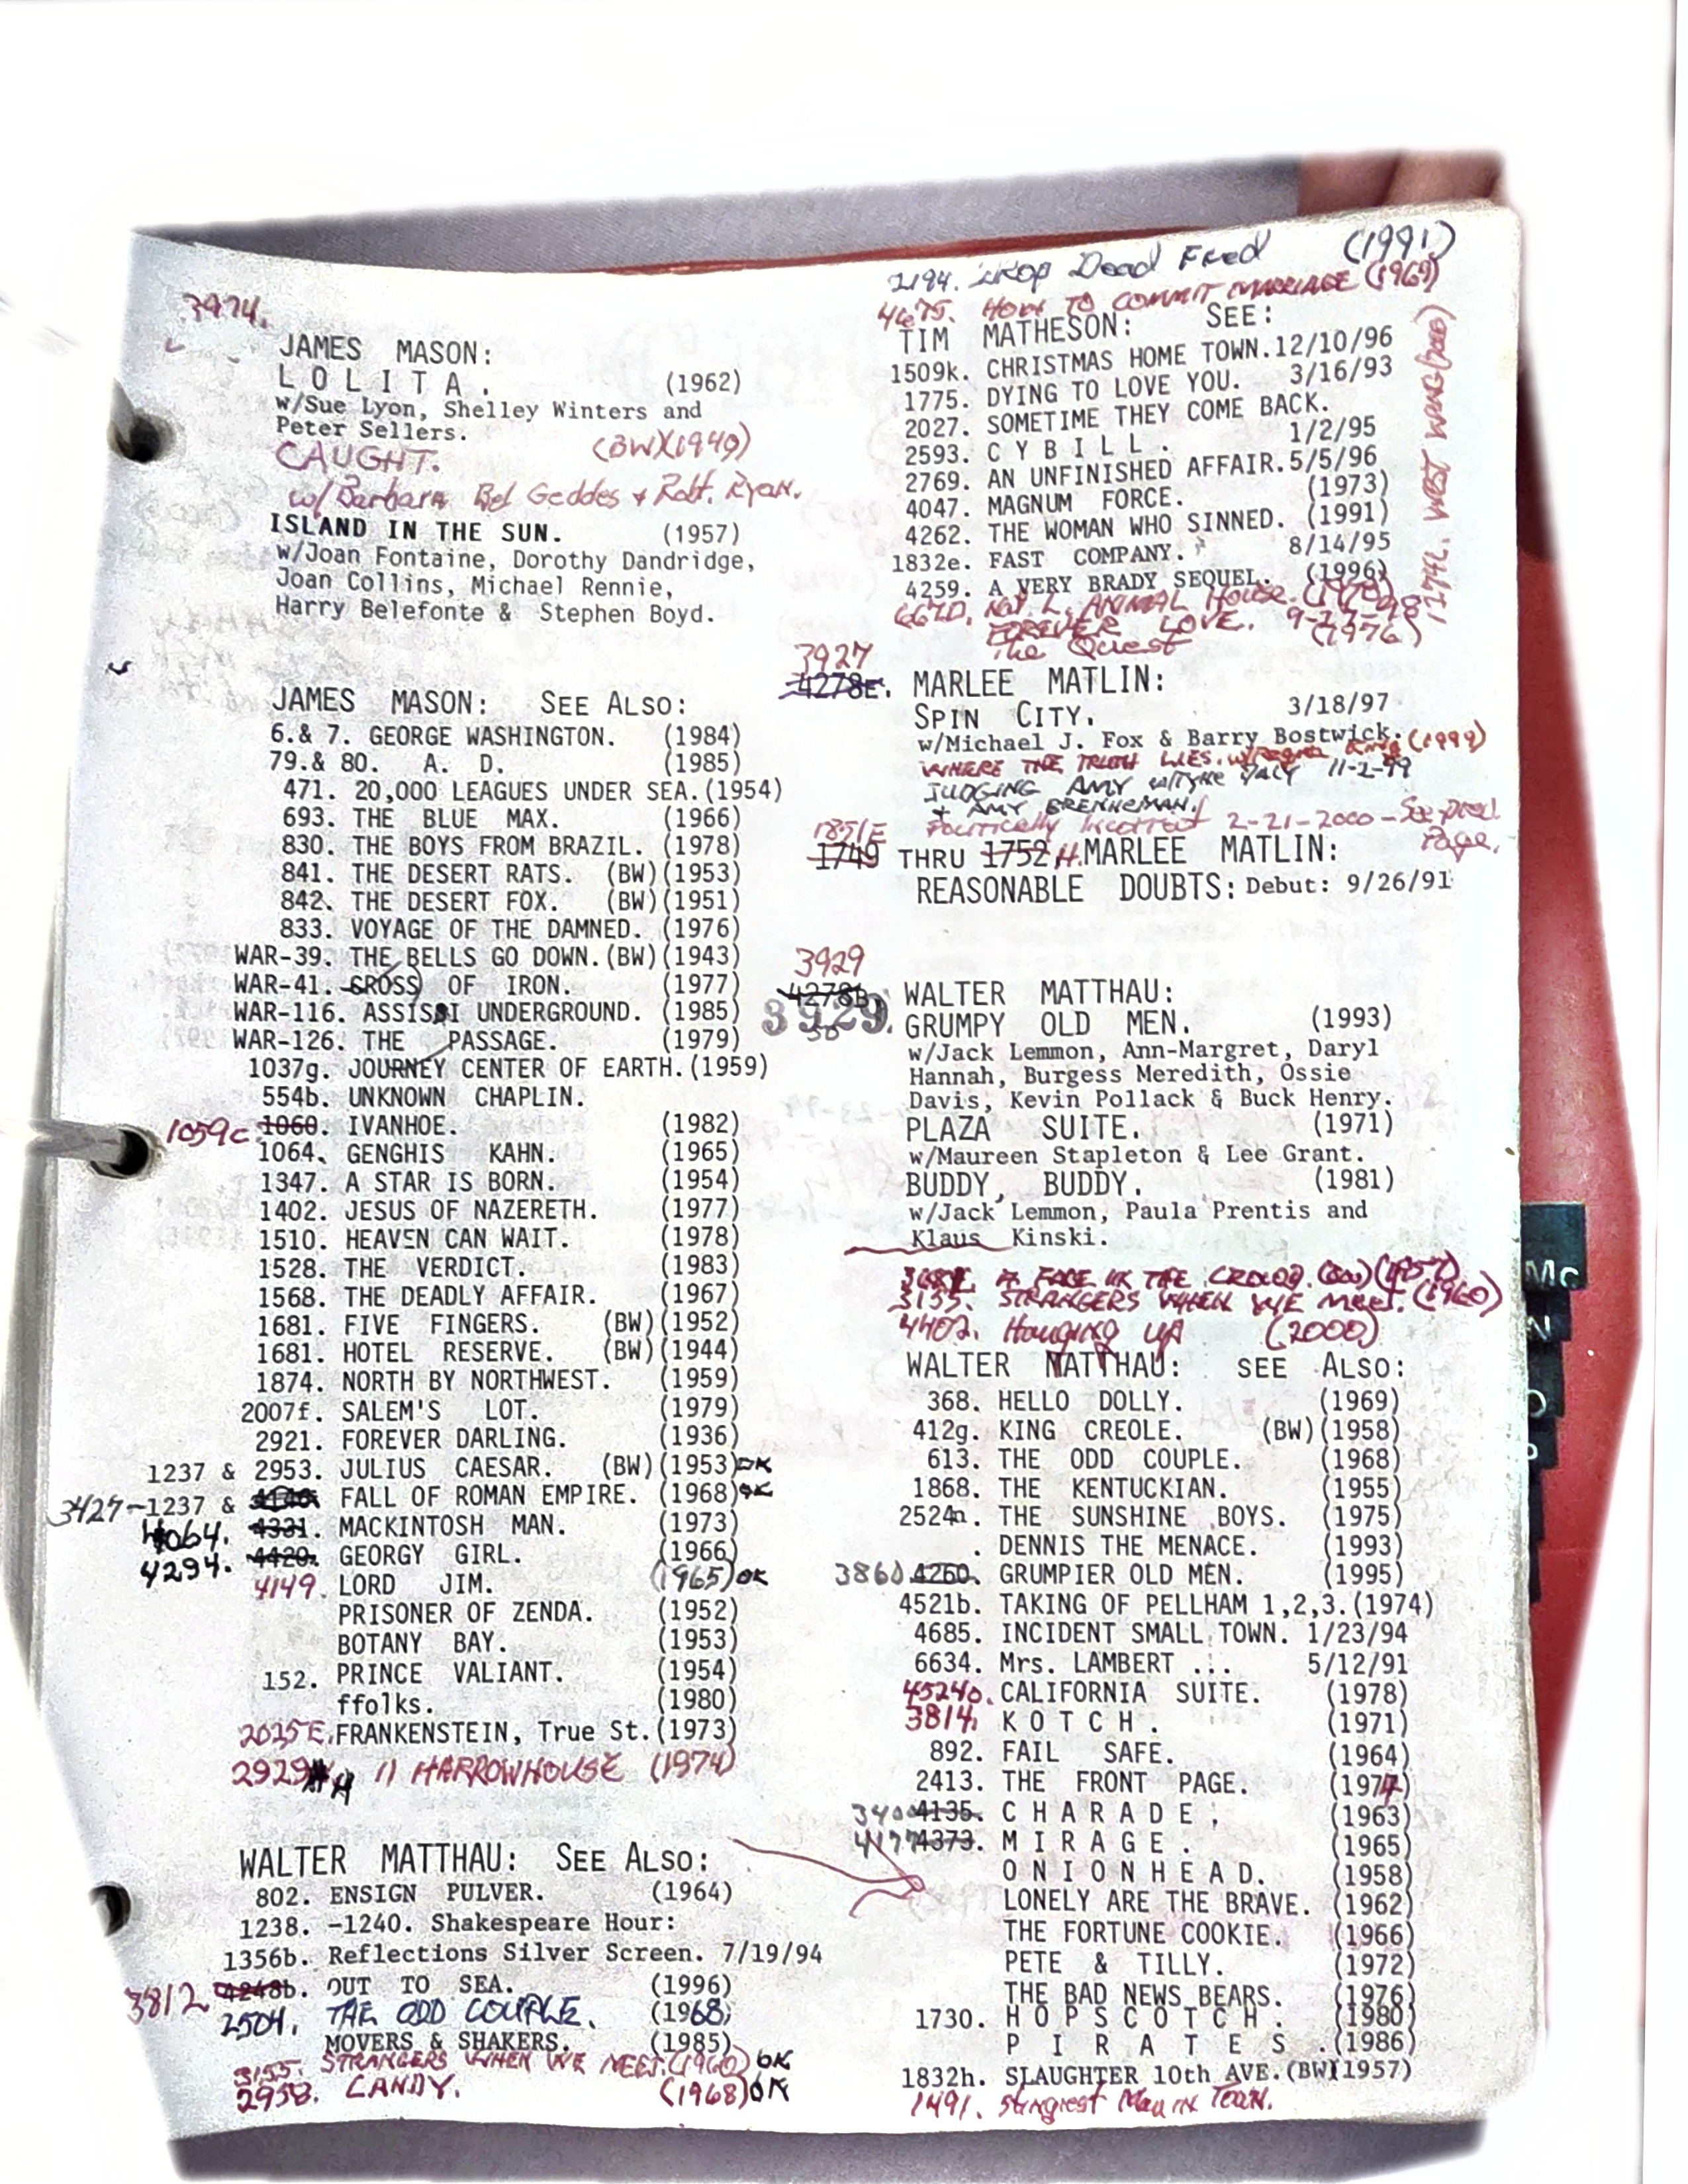 3974.
JAMES MASON:
L O L I T A . (1962)
w/Sue Lyon, Shelley Winters and
Peter Sellers.
CAUGHT. (BW)(1949)
w/Barbara Bel Geddes & Robt. Ryan.
ISLAND IN THE SUN. (1957)
w/Joan Fontaine, Dorothy Dandridge,
Joan Collins, Michael Rennie,
Harry Belefonte & Stephen Boyd.
JAMES MASON: SEE ALSO:
6.& 7. GEORGE WASHINGTON. (1984)
79.& 80. A. D. (1985)
471. 20,000 LEAGUES UNDER SEA.(1954)
693. THE BLUE MAX. (1966)
830. THE BOYS FROM BRAZIL. (1978)
841. THE DESERT RATS. (BW)(1953)
842. THE DESERT FOX. (BW)(1951)
833. VOYAGE OF THE DAMNED. (1976)
WAR-39. THE BELLS GO DOWN.(BW)(1943)
WAR-41. CROSS OF IRON. (1977)
WAR-116. ASSISSI UNDERGROUND. (1985)
WAR-126. THE PASSAGE. (1979)
1037g. JOURNEY CENTER OF EARTH.(1959)
554b. UNKNOWN CHAPLIN.
1059c 1060. IVANHOE. (1982)
1064. GENGHIS KAHN. (1965)
1347. A STAR IS BORN. (1954)
1402. JESUS OF NAZERETH. (1977)
1510. HEAVEN CAN WAIT. (1978)
1528. THE VERDICT. (1983)
1568. THE DEADLY AFFAIR. (1967)
1681. FIVE FINGERS. (BW)(1952)
1681. HOTEL RESERVE. (BW)(1944)
1874. NORTH BY NORTHWEST. (1959)
2007f. SALEM'S LOT. (1979)
2921. FOREVER DARLING. (1936)
1237 & 2953. JULIUS CAESAR. (BW)(1953)OK
3427-1237 & FALL OF ROMAN EMPIRE. (1968)OK
4064. 4331. MACKINTOSH MAN. (1973)
4294. 4420. GEORGY GIRL. (1966)
4149. LORD JIM. (1965)OK
PRISONER OF ZENDA. (1952)
BOTANY BAY. (1953)
152. PRINCE VALIANT. (1954)
ffolks. (1980)
2025E.FRANKENSTEIN, True St.(1973)
2929 H 11 HARROWHOUSE (1974)
WALTER MATTHAU: SEE ALSO:
802. ENSIGN PULVER. (1964)
1238. -1240. Shakespeare Hour:
1356b. Reflections Silver Screen. 7/19/94
3812 4248b. OUT TO SEA. (1996)
2504. THE ODD COUPLE. (1968)
MOVERS & SHAKERS. (1985)
3155. STRANGERS WHEN WE MEET.(1960) OK
2958. CANDY. (1968)OK
2194. Drop Dead Fred (1991)
4675. HOW TO COMMIT MARRIAGE (1969)
TIM MATHESON: SEE:
1509k. CHRISTMAS HOME TOWN.12/10/96
1775. DYING TO LOVE YOU. 3/16/93
2027. SOMETIME THEY COME BACK.
2593. C Y B I L L . 1/2/95
2769. AN UNFINISHED AFFAIR.5/5/96
4047. MAGNUM FORCE. (1973)
4262. THE WOMAN WHO SINNED. (1991)
1832e. FAST COMPANY. 8/14/95
4259. A VERY BRADY SEQUEL. (1996)
667D. NAT. L. ANIMAL HOUSE. (1978)
FOREVER LOVE. 9-27-98
The Quest (1976)
1274L. WEST WING(2000)
3927
4278E. MARLEE MATLIN:
SPIN CITY. 3/18/97
w/Michael J. Fox & Barry Bostwick.
WHERE THE TRUTH LIES. w/Regina King (1999)
JUDGING AMY w/Tyne Daly 11-2-99
& AMY BRENNEMAN.
Politically Incorrect 2-21-2000-See pred. Page.
1851E
1749 THRU 1752 H.MARLEE MATLIN:
REASONABLE DOUBTS: Debut: 9/26/91
3929
4278b
3929. WALTER MATTHAU:
GRUMPY OLD MEN. (1993)
w/Jack Lemmon, Ann-Margret, Daryl
Hannah, Burgess Meredith, Ossie
Davis, Kevin Pollack & Buck Henry.
PLAZA SUITE. (1971)
w/Maureen Stapleton & Lee Grant.
BUDDY, BUDDY. (1981)
w/Jack Lemmon, Paula Prentis and
Klaus Kinski.
A FACE IN THE CROWD. (BW)(1957)
3155. STRANGERS WHEN WE MEET. (1960)
4402. Hanging Up (2000)
WALTER MATTHAU: SEE ALSO:
368. HELLO DOLLY. (1969)
412g. KING CREOLE. (BW)(1958)
613. THE ODD COUPLE. (1968)
1868. THE KENTUCKIAN. (1955)
2524n. THE SUNSHINE BOYS. (1975)
. DENNIS THE MENACE. (1993)
3860 4260. GRUMPIER OLD MEN. (1995)
4521b. TAKING OF PELLHAM 1,2,3.(1974)
4685. INCIDENT SMALL TOWN. 1/23/94
6634. Mrs. LAMBERT ... 5/12/91
4524o. CALIFORNIA SUITE. (1978)
3814. K O T C H . (1971)
892. FAIL SAFE. (1964)
2413. THE FRONT PAGE. (1974)
3400 4135. C H A R A D E . (1963)
4177 4373. M I R A G E . (1965)
O N I O N H E A D. (1958)
LONELY ARE THE BRAVE. (1962)
THE FORTUNE COOKIE. (1966)
PETE & TILLY. (1972)
THE BAD NEWS BEARS. (1976)
1730. H O P S C O T C H . (1980)
P I R A T E S .(1986)
1832h. SLAUGHTER 10th AVE.(BW)(1957)
1491. Stingiest Man in Town.
Mc
N
O
P